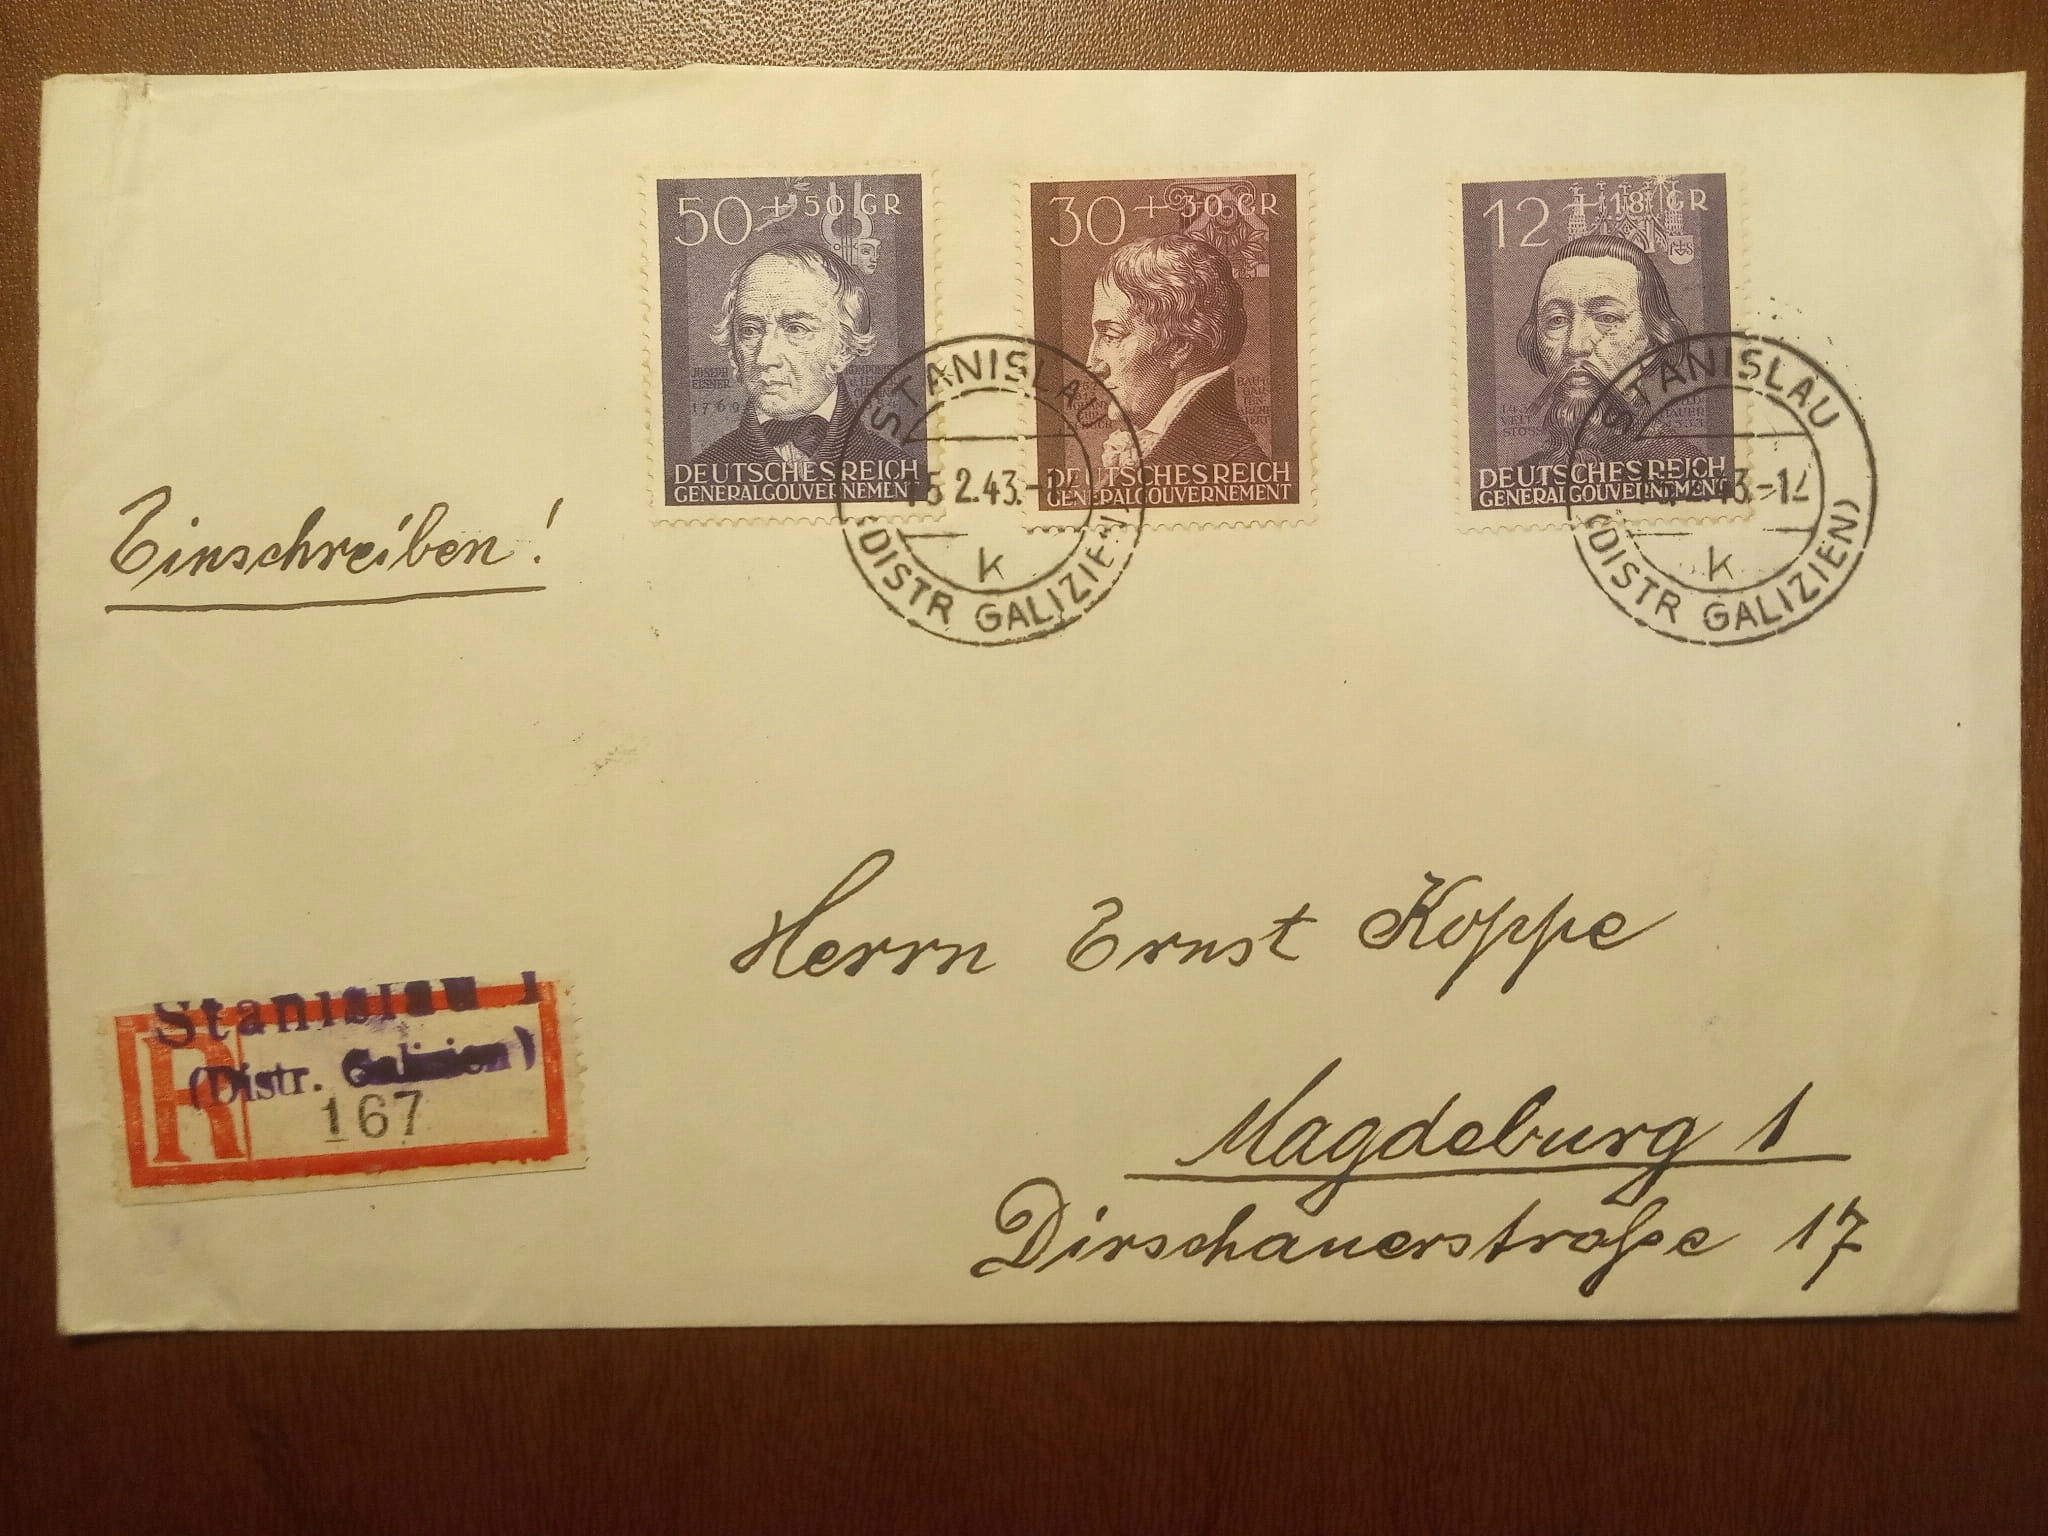 50 + 50 GR
JOSEPH
ELSNER
1769
DEUTSCHES REICH
GENERALGOUVERNEMENT
30 + 30 GR
DEUTSCHES REICH
GENERALGOUVERNEMENT
12 + 18 GR
VEIT
STOSS
DEUTSCHES REICH
GENERALGOUVERNEMENT
STANISLAU
15.2.43.-12
k
(DISTR GALIZIEN)
STANISLAU
43.-12
k
(DISTR GALIZIEN)
Einschreiben!
Herrn Ernst Koppe
Magdeburg 1
Dirschauerstraße 17
Stanislau 1
R (Distr. Galizien)
167